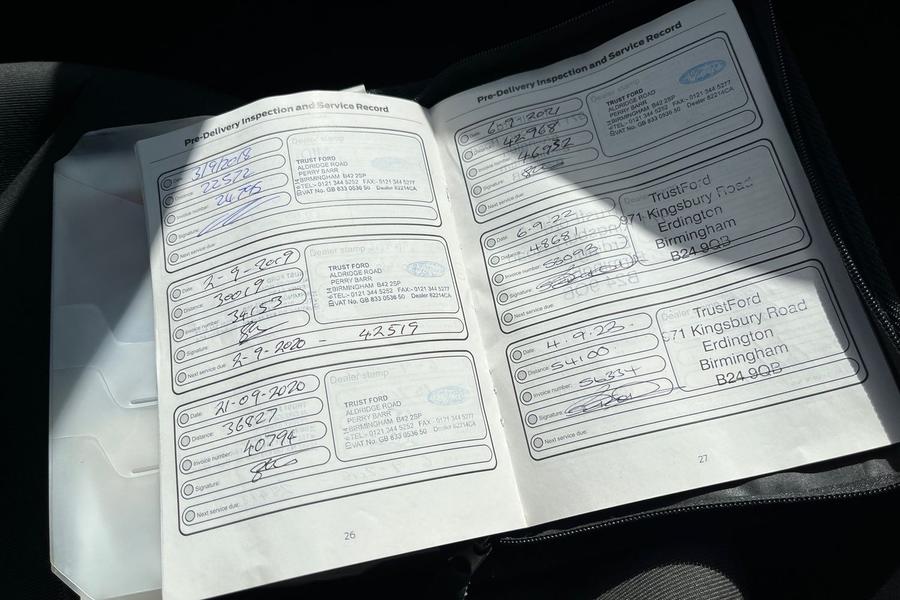 Pre-Delivery Inspection and Service Record
Dealer stamp
Date: 3/9/2018
22522
Invoice number:
Signature:
Next service due:
TRUST FORD
ALDRIDGE ROAD
PERRY BARR
BIRMINGHAM B42 2SP
TEL:- 0121 344 5252 FAX:- 0121 344 5277
VAT No. GB 833 0536 50 Dealer 82214CA
Dealer stamp
Date: 2-9-2019
Distance: 30019
Invoice number: 34153
Signature:
Next service due: 2-9-2020 - 42519
TRUST FORD
ALDRIDGE ROAD
PERRY BARR
BIRMINGHAM B42 2SP
TEL:- 0121 344 5252 FAX:- 0121 344 5277
VAT No. GB 833 0536 50 Dealer 82214CA
Dealer stamp
Date: 21-09-2020
Distance: 36827
Invoice number: 40794
Signature:
Next service due:
TRUST FORD
ALDRIDGE ROAD
PERRY BARR
BIRMINGHAM B42 2SP
TEL:- 0121 344 5252 FAX:- 0121 344 5277
VAT No. GB 833 0536 50 Dealer 82214CA
26
Pre-Delivery Inspection and Service Record
Dealer stamp
Date: 6-9-2021
42968
46932
Signature:
Next service due:
TRUST FORD
ALDRIDGE ROAD
PERRY BARR
BIRMINGHAM B42 2SP
TEL:- 0121 344 5252 FAX:- 0121 344 5277
VAT No. GB 833 0536 50 Dealer 82214CA
Date: 6-9-22
Distance: 48681
Invoice number: 53093
Signature:
Next service due:
TrustFord
971 Kingsbury Road
Erdington
Birmingham
B24 9QB
Date: 4.9.23.
Distance: 54100
Invoice number: 56334
Signature:
Next service due:
TrustFord
971 Kingsbury Road
Erdington
Birmingham
B24 9QB
27